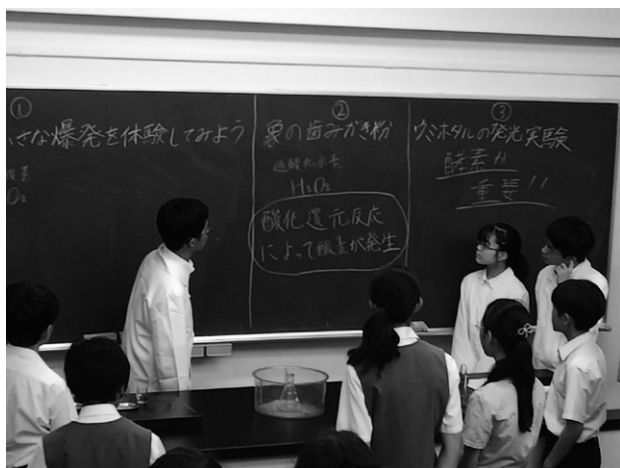 ①
さな爆発を体験してみよう
②
象の歯みがき粉
過酸化水素
H₂O₂
酸化還元反応
によって酸素が発生
③
ウミホタルの発光実験
酵素が
重要!!